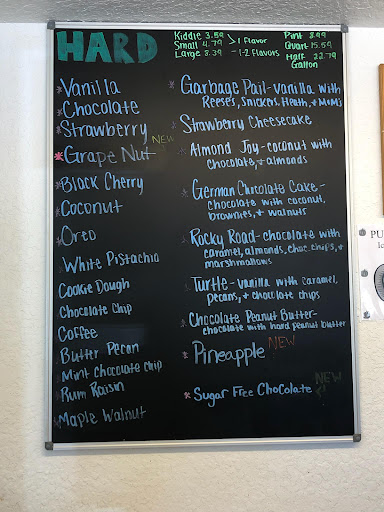 HARD
Kiddie 3.59
Small 4.79 > 1 Flavor
Large 8.39 - 1-2 Flavors
Pint 8.99
Quart 15.59
Half 22.79
Gallon
*Vanilla
*Chocolate
*Strawberry
*Grape Nut NEW
*Black Cherry
*Coconut
*Oreo
White Pistachio
Cookie Dough
Chocolate Chip
Coffee
Butter Pecan
*Mint Chocolate Chip
*Rum Raisin
*Maple Walnut
*Garbage Pail - vanilla with
Reeses, Snickers, Heath, + M&M's
*Strawberry Cheesecake
*Almond Joy - coconut with
chocolate, + almonds
*German Chocolate Cake -
chocolate with coconut,
brownies, + walnuts
*Rocky Road - chocolate with
caramel, almonds, choc chips, +
marshmallows
*Turtle - vanilla with caramel,
pecans, + chocolate chips
*Chocolate Peanut Butter -
chocolate with hard peanut butter
*Pineapple NEW
*Sugar Free Chocolate NEW
PU